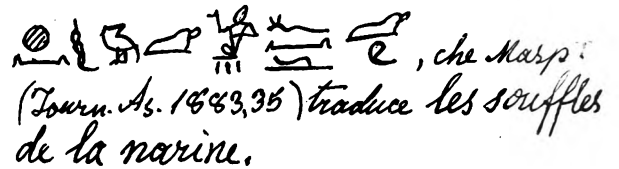 , che Masp.
(Journ. As. 1883,35) traduce les souffles
de la narine.